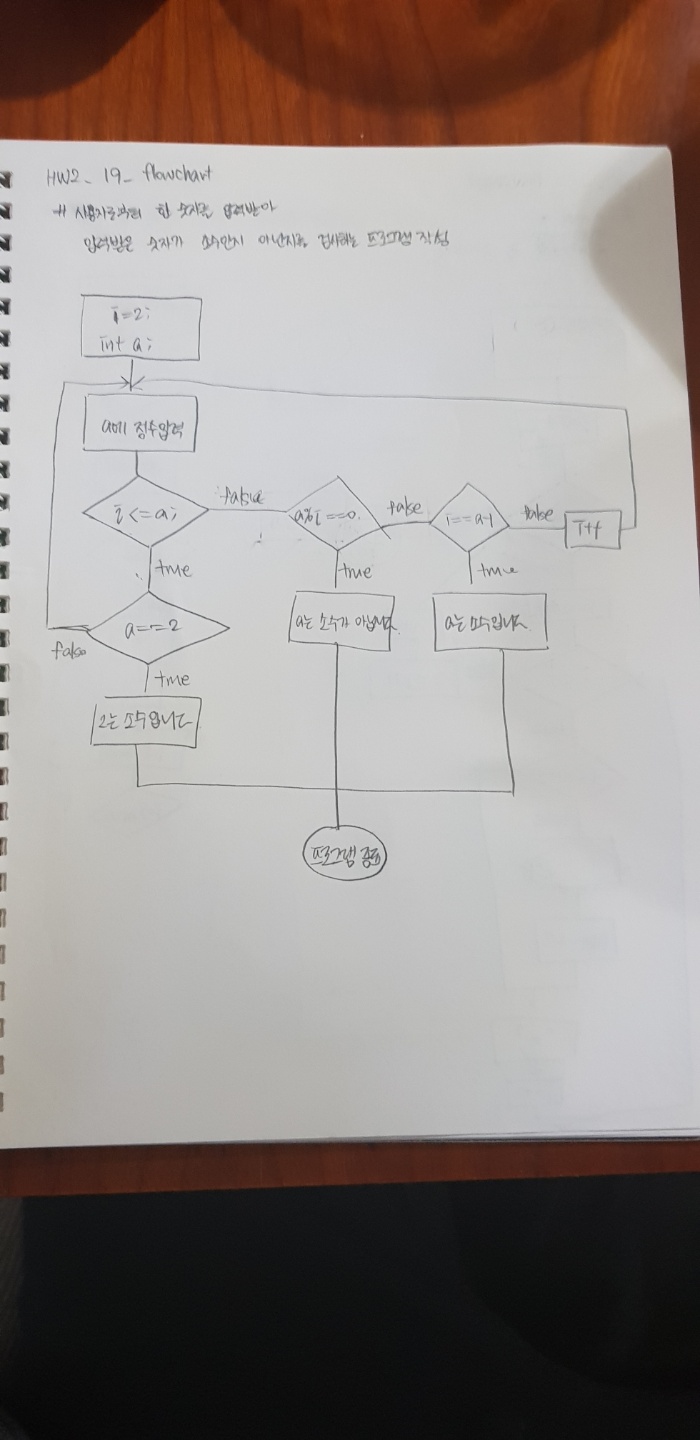 HW2_19_flowchart
# 사용자로부터 한 숫자를 입력받아
입력받은 숫자가 소수인지 아닌지를 검사하는 프로그램 작성
i=2;
int a;
a에 정수입력
i<=a;
false
a%i==0.
false
i==a-1
false
i++
true
true
true
a==2
a는 소수가 아닙니다.
a는 소수입니다.
false
true
2는 소수입니다
프로그램 종료